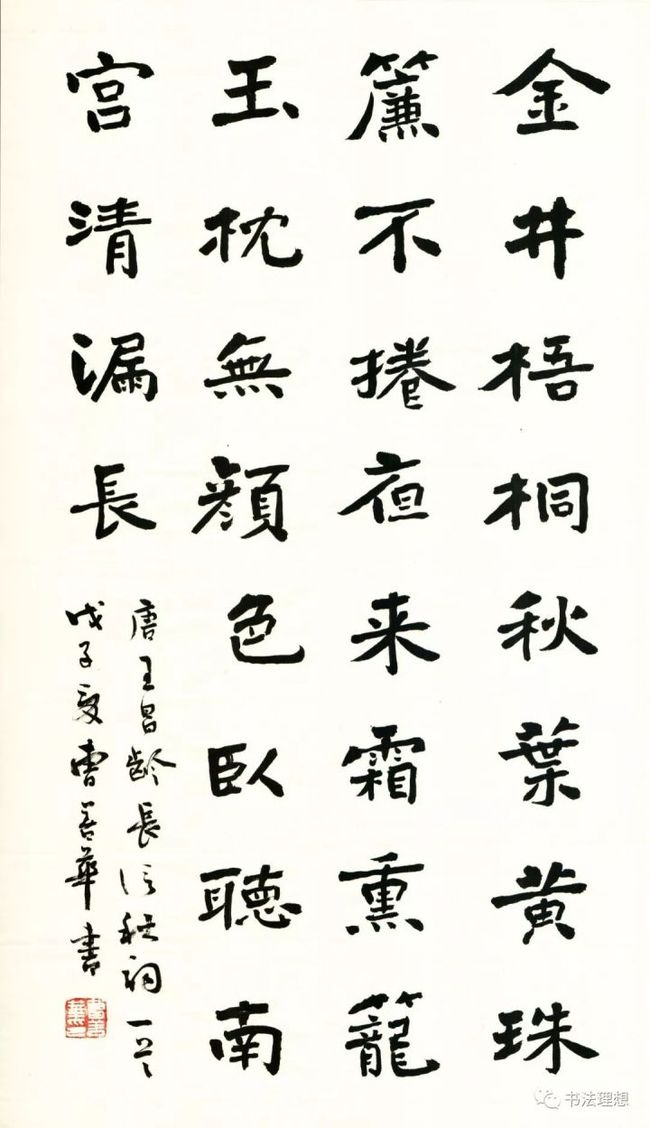 金井梧桐秋葉黄珠
簾不捲夜来霜熏籠
玉枕無顔色臥聽南
宫清漏長
唐王昌齡長信秋詞一首
戊子夏曹善華書
书法理想